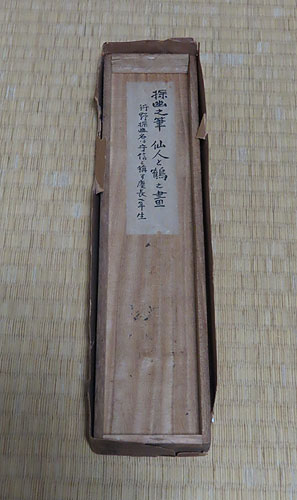 探幽之筆 仙人と鶴之畫
狩野探幽名は守信と稱す慶長七年生